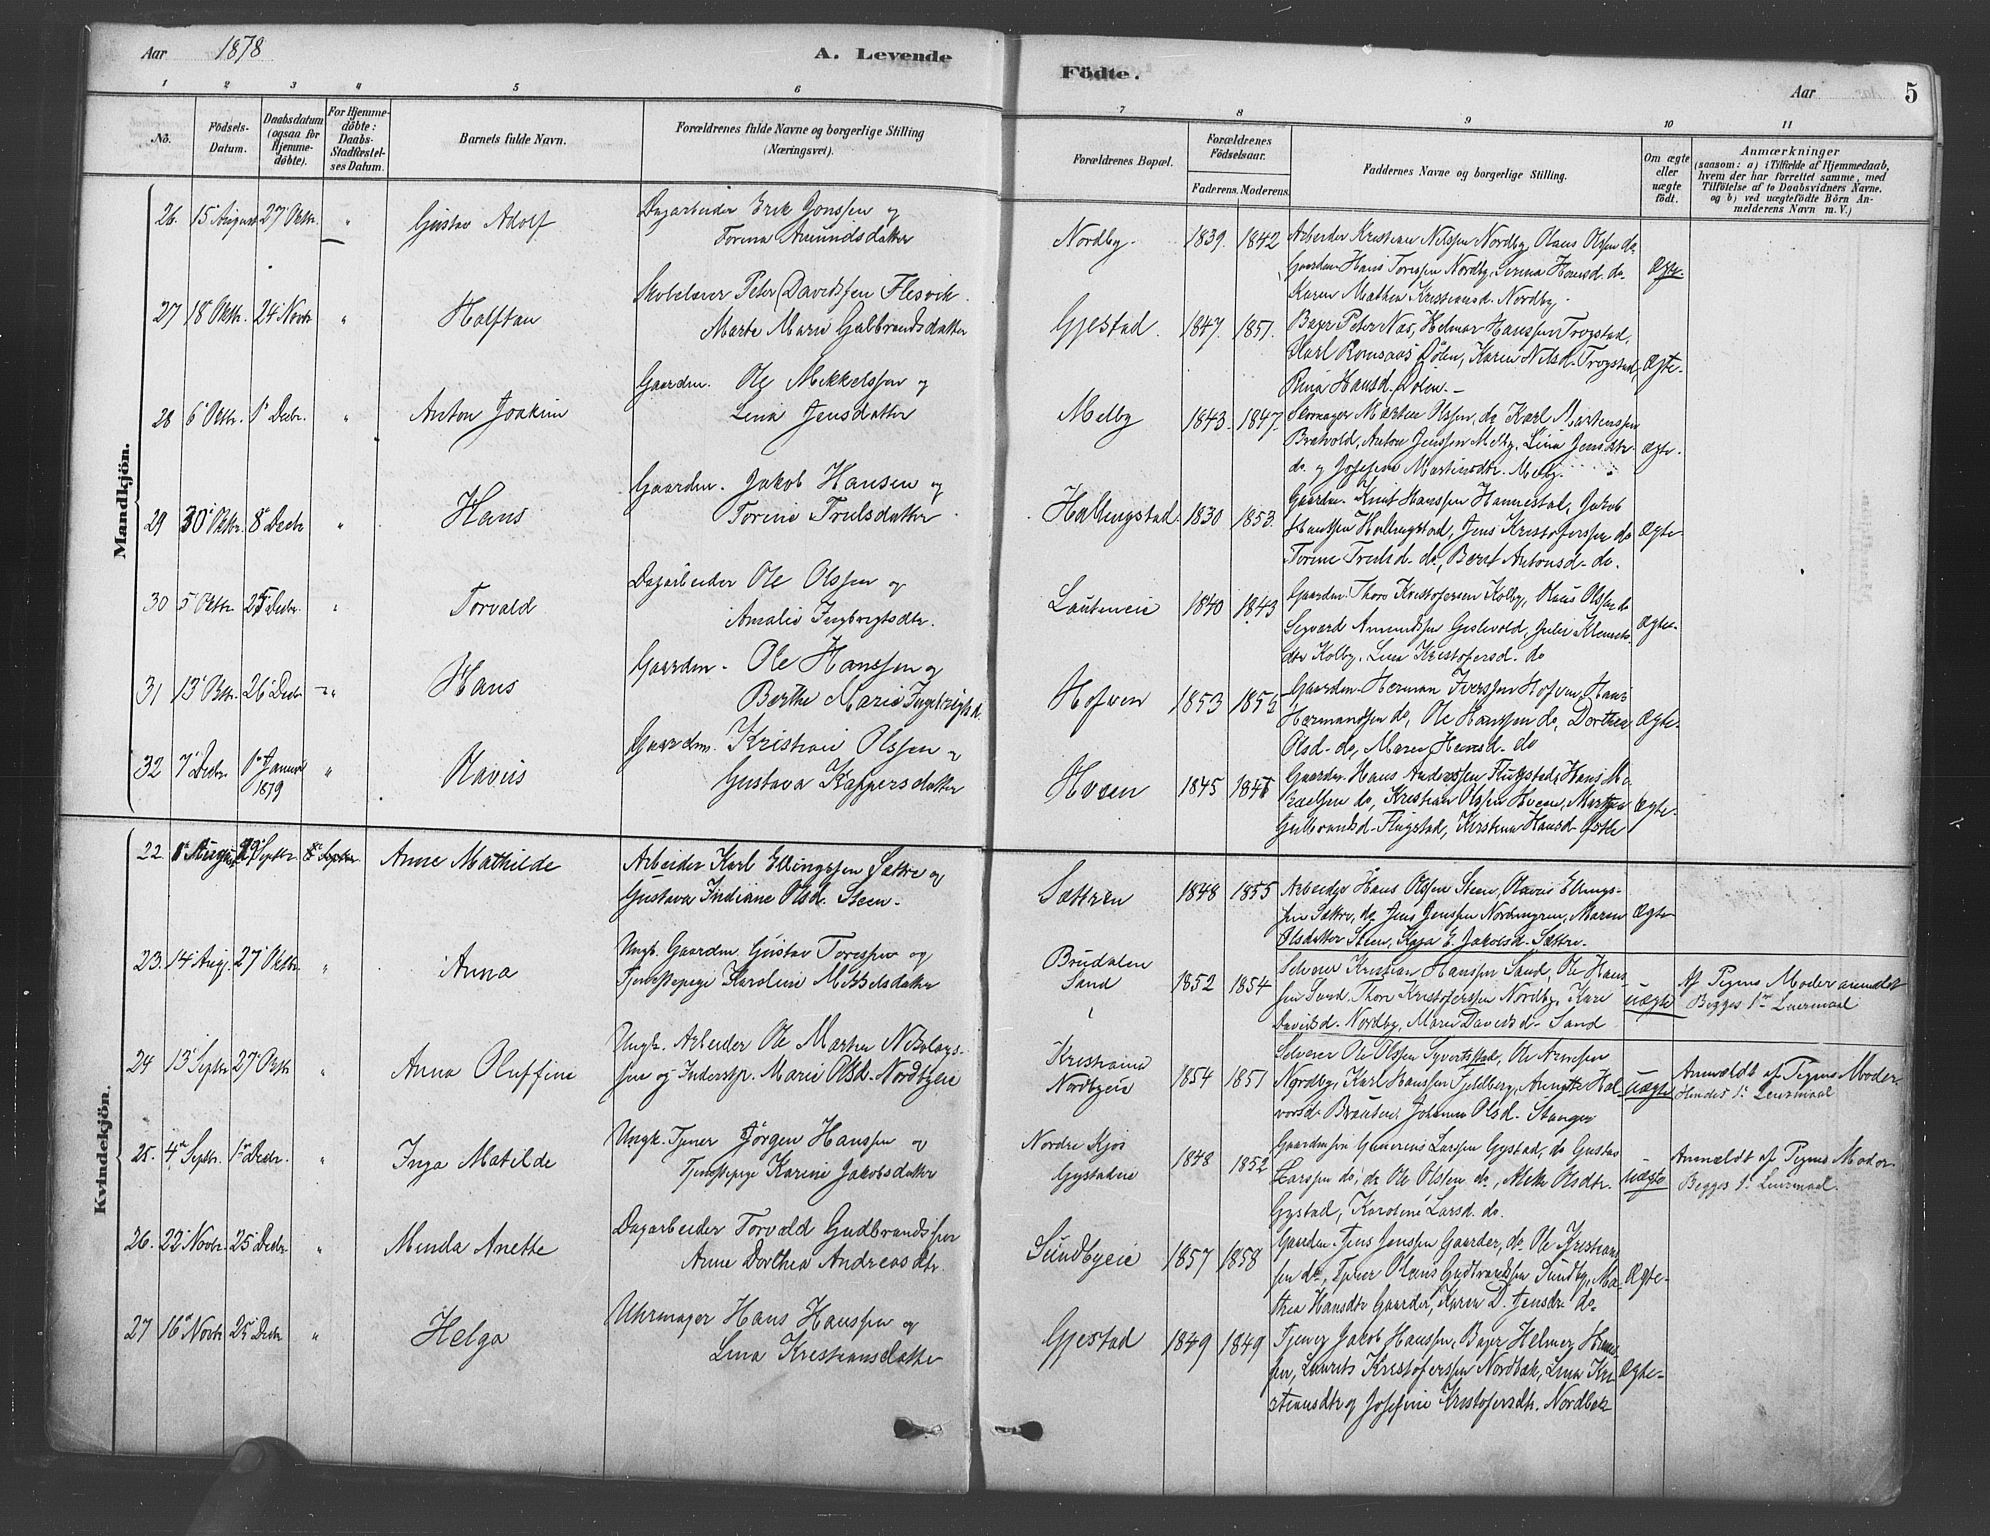 Aar 1878
A. Levende Födte.
Aar 5
1 2 3 4 5 6 7 8 9 10 11
No.
Födsels-Datum.
Daabsdatum (ogsaa for Hjemmedöbte).
For Hjemmedöbte: Daabs-Stadfæstelses Datum.
Barnets fulde Navn.
Forældrenes fulde Navne og borgerlige Stilling (Næringsvei).
Forældrenes Bopæl.
Forældrenes Födselsaar.
Faderens. Moderens.
Faddernes Navne og borgerlige Stilling.
Om ægte eller uægte födt.
Anmærkninger
(saasom: a) i Tilfælde af Hjemmedaab, hvem der har forrettet samme, med Tilföielse af to Daabsvidners Navne. og b) ved uægtefödte Börn Anmelderens Navn m. V.)
Mandkjön.
26 15 August 27 Oktr. " Gustav Adolf
Dagarbeider Erik Jonssen og
Torina Amundsdatter
Nordby. 1839. 1842
Arbeider Kristian Nilssen Nordby, Olaus Olssen do
Gaardm. Hans Toressen Nordby, Serina Hansd. do.
Karen Mathea Kristiansd. Nordby.
Ægte.
27 18 Oktr. 24 Novbr " Halftan
Skolelærer Peter Davidssen Flesvik.
Marte Marie Gulbrandsdatter
Gjestad. 1847. 1851.
Bager Peter Nas, Helmer Hanssen Trogstad,
Karl Romsaas Dölen, Karen Nilsd. Trogstad,
Rina Hansd. Dölen. —
Ægte.
28 6 Oktr. 1 Decbr. " Anton Joakim
Gaardm. Ole Mekkelssen og
Lina Jensdatter
Melby 1843. 1847.
Skomager Martin Olssen, do Karl Martinssen
Bratvold, Anton Jenssen Melby, Lina Jensdtr.
do. og Josefine Martinsdtr. Melby.
Ægte.
29 30 Oktr. 8 Decbr " Hans
Gaardm. Jakob Hansen og
Torine Trulsdatter
Hallingstad. 1830 1853.
Gaardm. Knut Hanssen Hannestad, Jakob
Hanssen Hallingstad, Jens Kristoferssen do
Torine Trulsd. do, Berit Antonsd. do.
Ægte
30 5 Oktr. 25 Decbr. " Torvald
Dagarbeider Ole Olssen og
Amalie Ingbrigtsdtr.
1840 1843
Gaardm. Thore Kristofersen Kolby, Olaus Olssen do
Segvard Amundssen Gislevold, Julie Klemets-
dtr Kolby, Lina Kristofersd. do
Ægte.
31 13 26 Decbr " Hans
Gaardm. Ole Hanssen og
Berthe Marie Ingebrigtsd.
Hofven 1853
Gaardm. Herman Iverssen Hofven, Hans
Hermandssen do, Ole Hanssen do, Dorthea
Olsd. do, Maren Hansd. do
Ægte.
32 7 Decbr 1 Januar 1879 " Olavus
Gaardm. Kristian Olssen
Gustava Kaspersdatter
Hvaen 1845
Gaardm. Hans Anderssen Flugstad, Hans
do, Kristian Olssen Hvaen, Marthea
Gulbrandsd. Flugstad, Kirstina Hansd.
Ægte
Kvindekjön.
22 August Septbr Septbr Anne Mathilde
Arbeider Karl Ellingssen Sættre og
Gustava Indiane Olsd. Steen.
Sættren 1848 1855
Arbeider Hans Olssen Steen, Olavus Ellings-
sen Sættre, do Jens Jenssen Nordengren, Maren
Olsdatter Steen, Kaja E. Jakobsd. Sættre.
Ægte
23. 14 Aug. 27 Oktbr. " Anna
Ungk. Gaardm. Gustav Toressen og
Tjenestepige Karoline Mikkelsdatter
Brudalen
Sand 1852 1854
Selveier Kristian Hanssen Sand, Ole Hans-
sen Sand, Thore Kristoferssen Nordby, Kari
Davidsd. Nordby, Maren Davidsd. Sand
uægte
Af Pigens Moder anmeldt
Begges 1ste Leiermaal
24 13 Septbr 27 Oktr " Anna Oluffine
Ungk. Arbeider Ole Martin Nikolays-
sen og Inderstp. Marie Olsd. Nordbyeie
Kristiania
Nordbyeie 1854 1851
Selveier Ole Olssen Syvertstad, Ole Arnessen
Nordby, Karl Hanssen Fjeldberg, Anette Hal-
vorsd. Braaten, Johanne Olsd. Stanger
uægte
Anmeldt af Pigens Moder
Hendes 1ste Leiermaal
25. 4 Septbr. 1 Decbr. " Inga Matilde
Ungk. Tjener Jörgen Hanssen og
Tjenestepige Karine Jakobsdatter
Nordre Kjos
Gystadeie 1848 1852
Gaardmsön Larssen Gystad, do Gustav
Larssen do, do Ole Olsten do, Mette Olsdtr.
Gystad, Karoline Larsd. do.
uægte
Anmeldt af Pigens Moder.
Begges 1ste Leiermaal.
26. 22 Novbr. 25 Decbr " Minda Anette
Dagarbeider Torvald Gudbrandssen
Anne Dorthea Andreasdtr.
Sundbyeie 1857 1858
Gaardm. Jens Jenssen Gaarder, do. Ole Kristians-
sen do, Tjener Olaus Gudbrandssen Sundby, Ma-
thea Hansdtr Gaarder, Karen D. Jensdr. do.
Ægte.
27 16 Novbr 25 Decbr " Helga
Uhrmager Hans Hanssen og
Lina Kristiansdatter
Gjestad 1849 1849
Tjener Jakob Hanssen, Bager Helmer Hans-
sen, Laurits Kristoferssen Nordbæk, Lina Kri-
stiansdtr og Josefine Kristofersdtr. Nordbæk
Ægte.